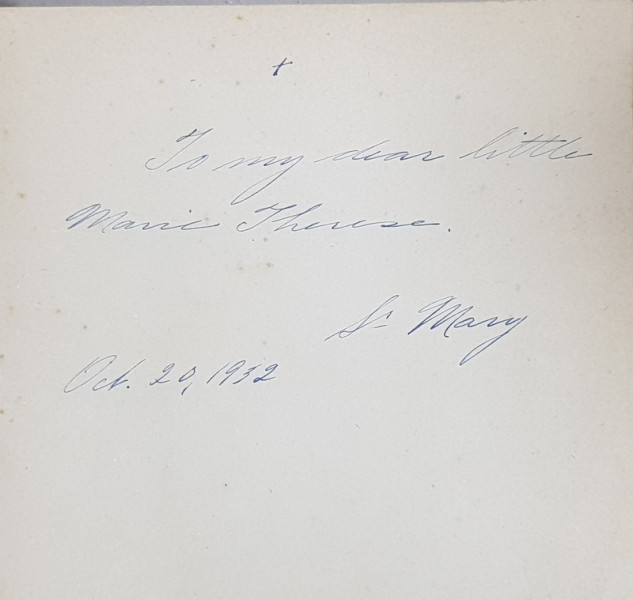 +
To my dear little
Marie Therese.
Sr Mary
Oct. 20, 1932